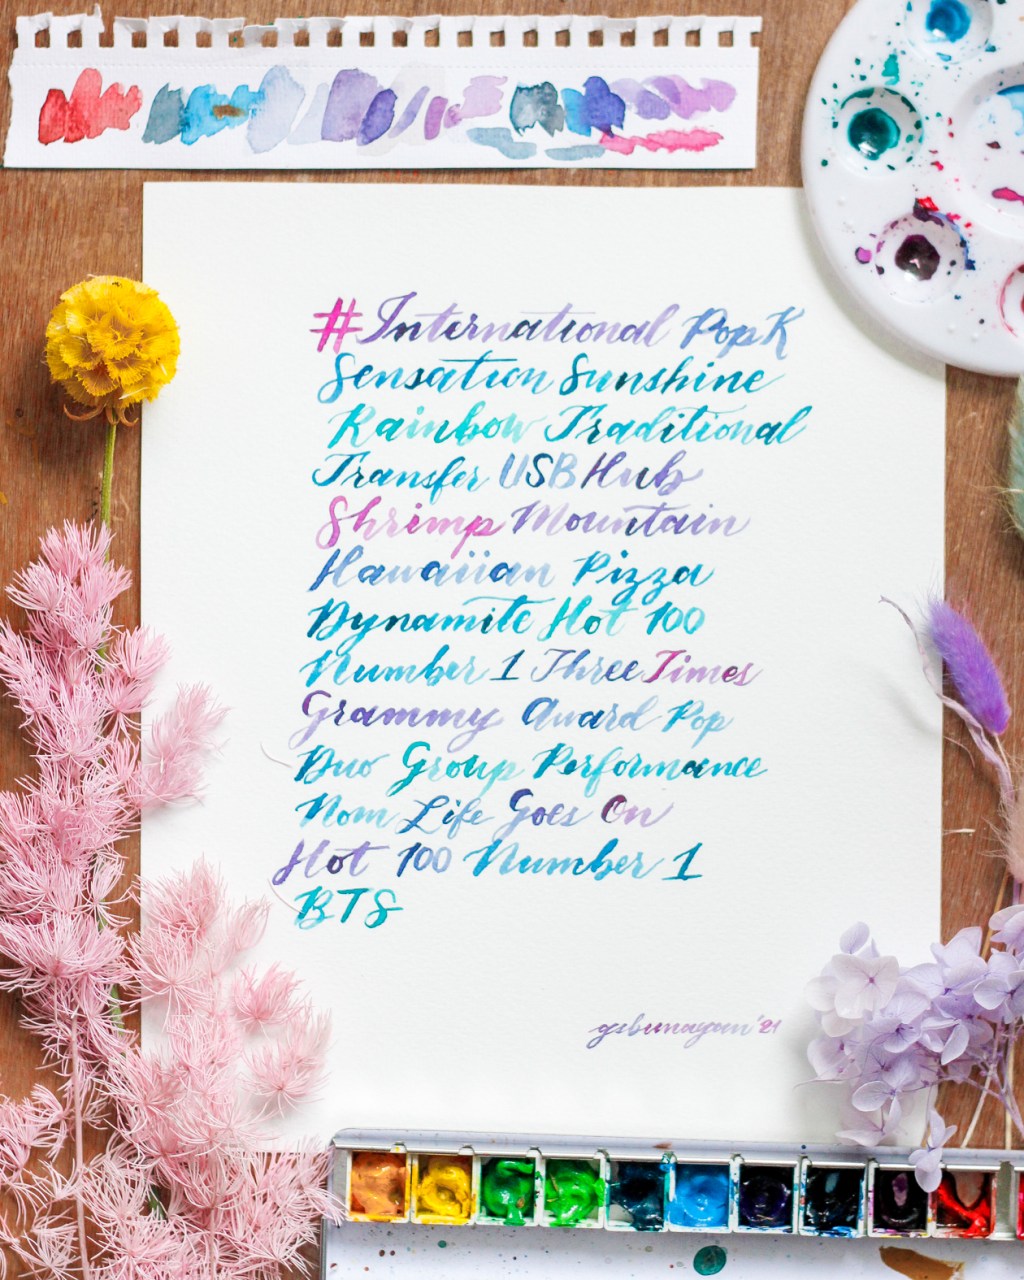 #International PopK
Sensation Sunshine
Rainbow Traditional
Transfer USB Hub
Shrimp Mountain
Hawaiian Pizza
Dynamite Hot 100
Number 1 Three Times
Grammy Award Pop
Duo Group Performance
Nom Life Goes On
Hot 100 Number 1
BTS
gsbunagan '21